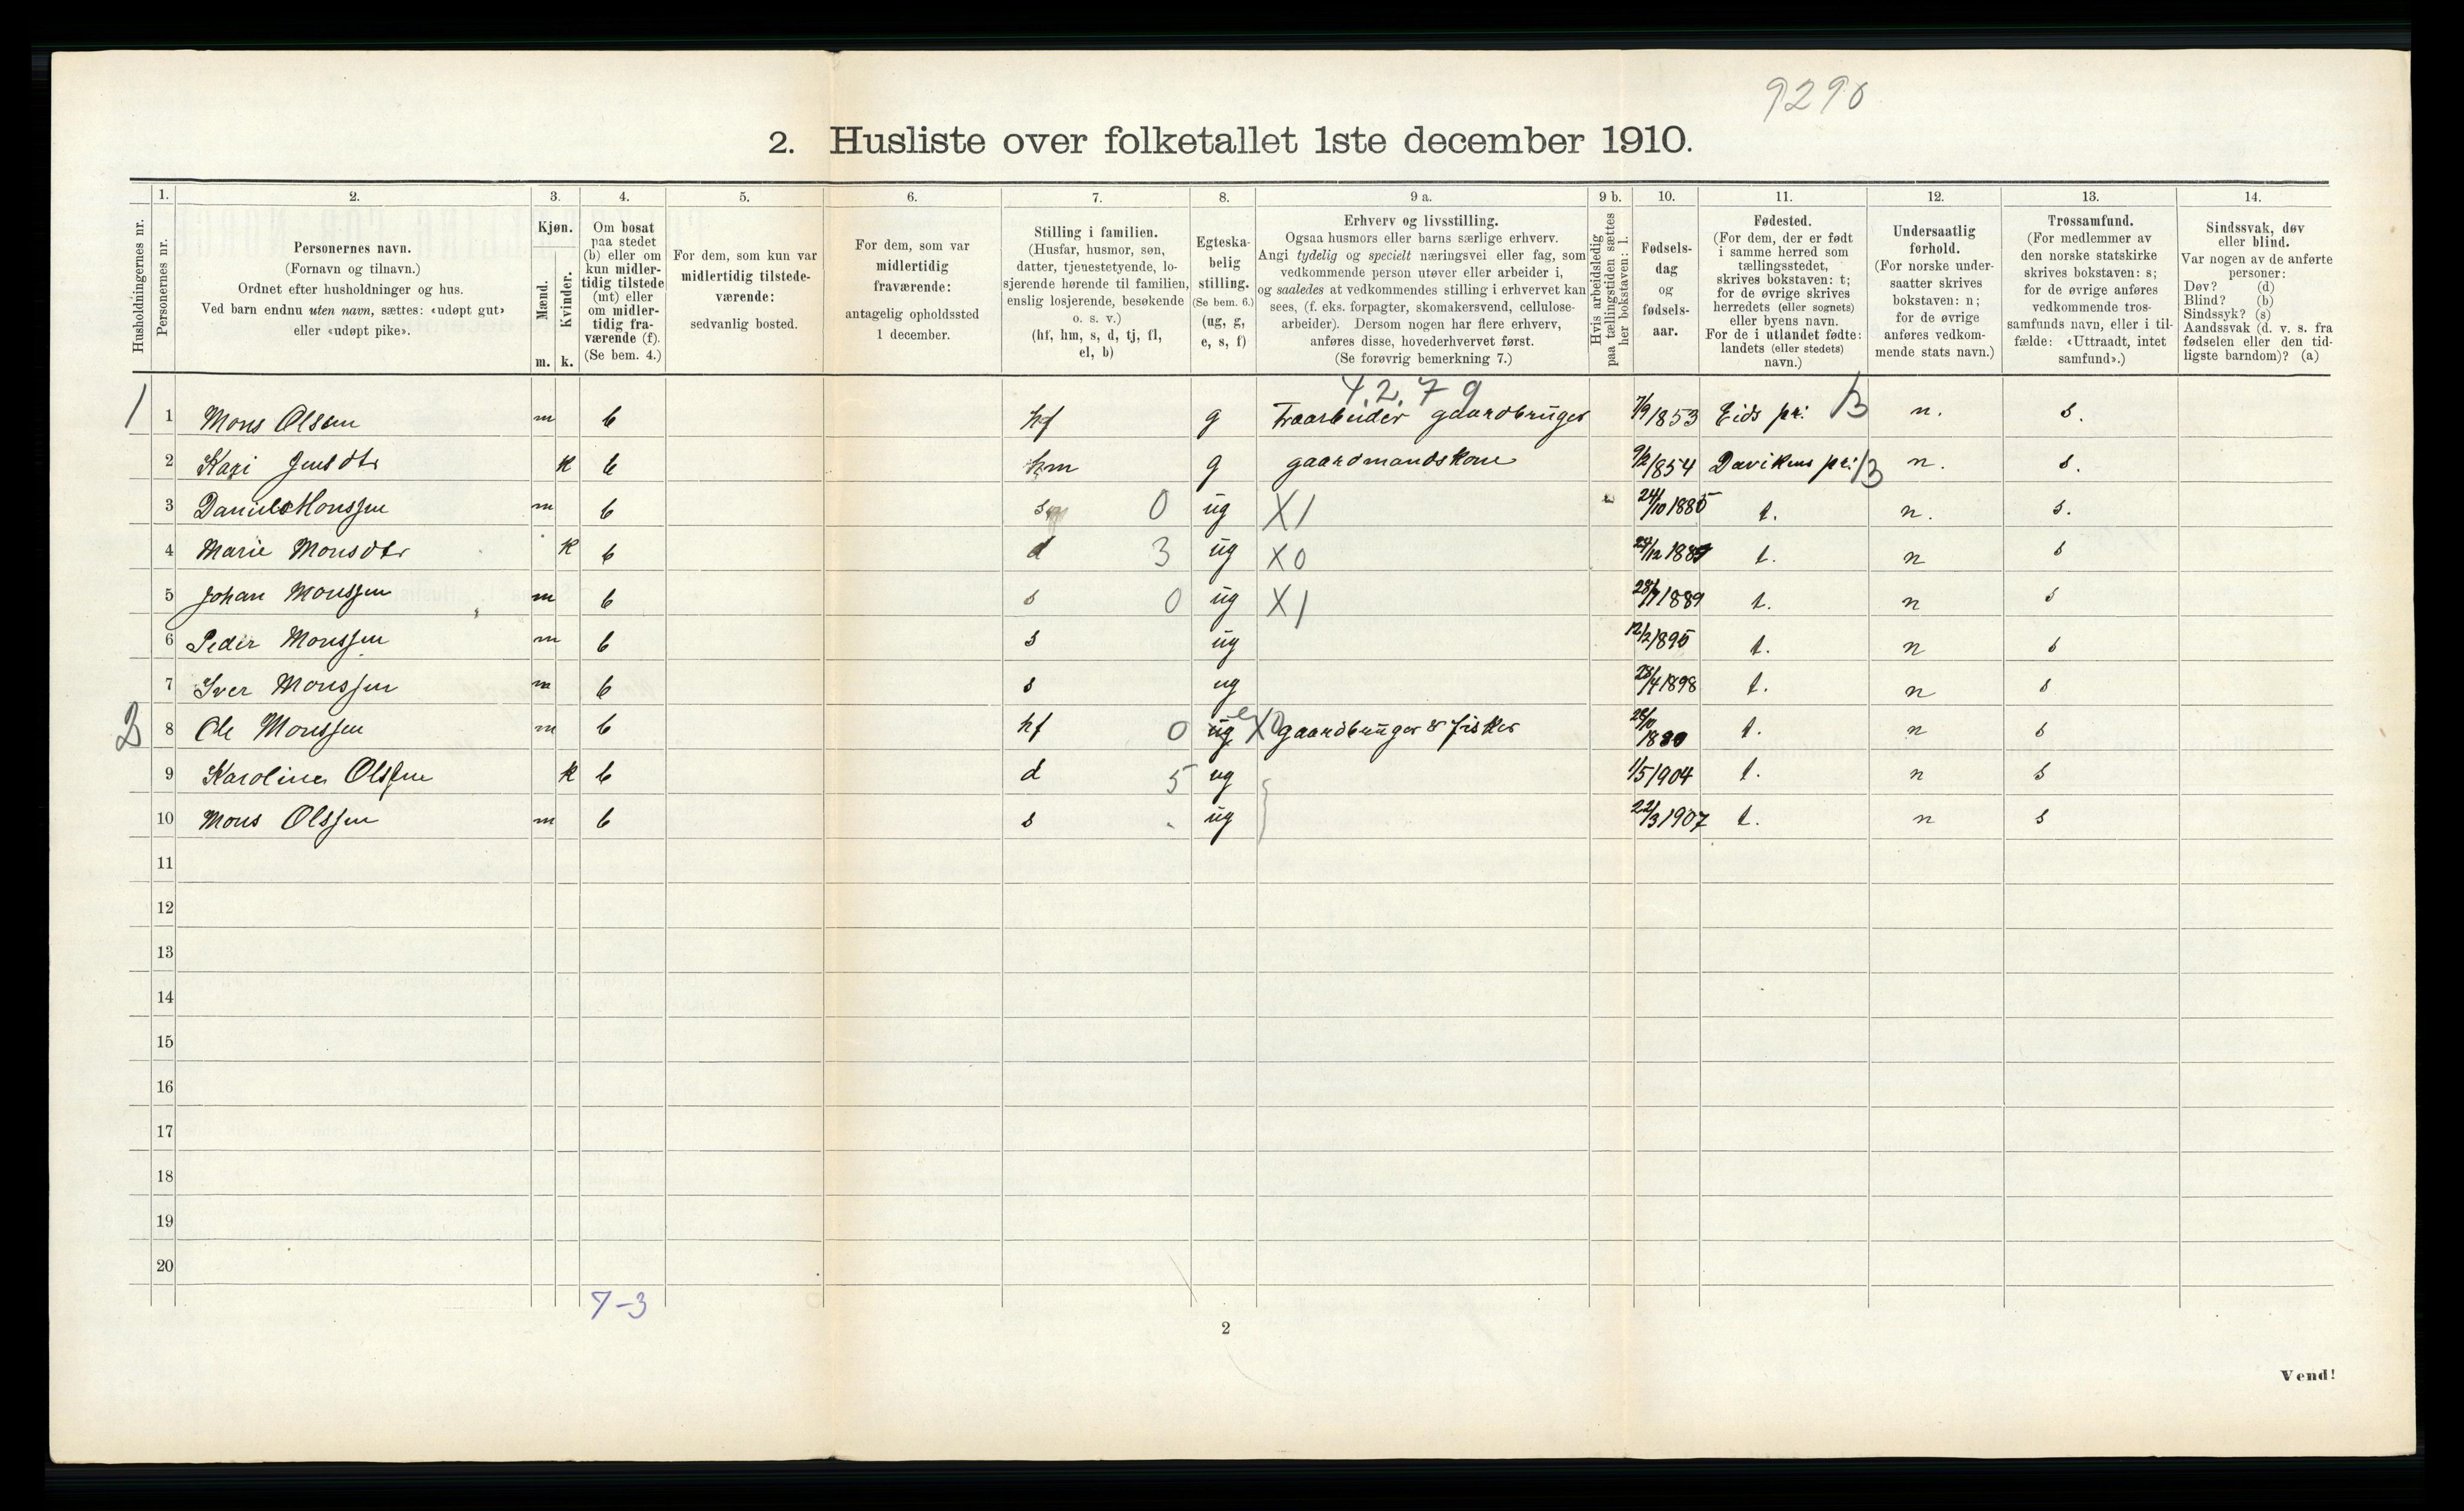 9290
2. Husliste over folketallet 1ste december 1910.
1. 2. 3. 4. 5. 6. 7. 8. 9 a. 9 b. 10. 11. 12. 13. 14.
Husholdningernes nr.
Personernes nr.
Personernes navn.
(Fornavn og tilnavn.)
Ordnet efter husholdninger og hus.
Ved barn endnu uten navn, sættes: «udøpt gut»
eller «udøpt pike».
Kjøn.
Mænd.
Kvinder.
m. k.
Om bosat
paa stedet
(b) eller om
kun midler-
tidig tilstede
(mt) eller
om midler-
tidig fra-
værende (f).
(Se bem. 4.)
For dem, som kun var
midlertidig tilstede-
værende:
sedvanlig bosted.
For dem, som var
midlertidig
fraværende:
antagelig opholdssted
1 december.
Stilling i familien.
(Husfar, husmor, søn,
datter, tjenestetyende, lo-
sjerende hørende til familien,
enslig losjerende, besøkende
o. s. v.)
(hf, hm, s, d, tj, fl,
el, b)
Egteska-
belig
stilling.
(Se bem. 6.)
(ug, g,
e, s, f)
Erhverv og livsstilling.
Ogsaa husmors eller barns særlige erhverv.
Angi tydelig og specielt næringsvei eller fag, som
vedkommende person utøver eller arbeider i,
og saaledes at vedkommendes stilling i erhvervet kan
sees, (f. eks. forpagter, skomakersvend, cellulose-
arbeider). Dersom nogen har flere erhverv,
anføres disse, hovederhvervet først.
(Se forøvrig bemerkning 7.)
Hvis arbeidsledig
paa tællingstiden sættes
her bokstaven: l.
Fødsels-
dag
og
fødsels-
aar.
Fødested.
(For dem, der er født
i samme herred som
tællingsstedet,
skrives bokstaven: t;
for de øvrige skrives
herredets (eller sognets)
eller byens navn.
For de i utlandet fødte:
landets (eller stedets)
navn.)
Undersaatlig
forhold.
(For norske under-
saatter skrives
bokstaven: n;
for de øvrige
anføres vedkom-
mende stats navn.)
Trossamfund.
(For medlemmer av
den norske statskirke
skrives bokstaven: s;
for de øvrige anføres
vedkommende tros-
samfunds navn, eller i til-
fælde: «Uttraadt, intet
samfund».)
Sindssvak, døv
eller blind.
Var nogen av de anførte
personer:
Døv? (d)
Blind? (b)
Sindssyk? (s)
Aandssvak (d. v. s. fra
fødselen eller den tid-
ligste barndom)? (a)
4.2.79
1 1 Mons Olssen m b hf g Traarbeider gaardbruger 7/9 1853 Eids pr: 13 n. s.
2 Kari Jensdtr k b hm g gaardmandskone 9/2 1854 Davikens pr: 13 n. s.
3 Daniel Monssen m b s 0 ug X1 24/10 1885 t. n. s.
4 Marie Monsdtr k b d 3 ug X0 t. n s
5 Johan Monssen m b s 0 ug X1 1889 t. n s
6 Peder Monssen m b s ug 12/2 1895 t. n s
7 Iver Monssen m b s ug 1898 t. n s
2 8 Ole Monssen m b hf 0 ug e X0 gaardbruger & fisker 1880 t. n s
9 Karoline Olssen k b d 5 ug 1/5 1904 t. n s
10 Mons Olssen m b s ug 22/3 1907 t. n s
11
12
13
14
15
16
17
18
19
20
7-3
2
Vend!